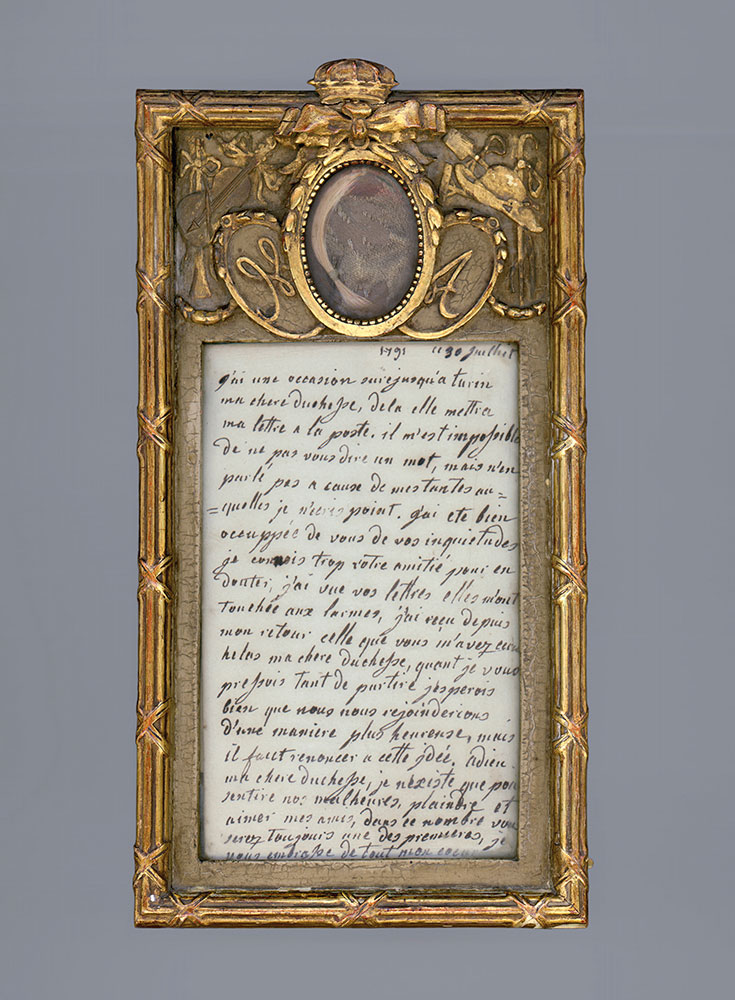 1791 le 30 Juillet
j'ai une occasion sure jusqu'a turin
ma chere duchesse, dela elle mettra
ma lettre a la poste. il m'est impossible
de ne pas vous dire un mot, mais n'en
parlé pas a cause de mes tantes au=
=quelles je n'ecris point. j'ai eté bien
occuppée de vous de vos inquietudes
je connois trop votre amitié pour en
douter, j'ai vue vos lettres elles m'ont
touchée aux larmes, j'ai recu depuis
mon retour celle que vous m'avez
helas ma chere duchesse, quant je vous
pressois tant de partire j'esperois
bien que nous nous rejoinderions
d'une maniere plus heureuse, mais
il faut renoncer a cette jdée. adieu
ma chere duchesse, je n'existe que pour
sentire nos malheures, plaindre et
aimer mes amis, dans ce nombre vous
serez toujours une des premieres, je
vous embrasse de tout mon coeur